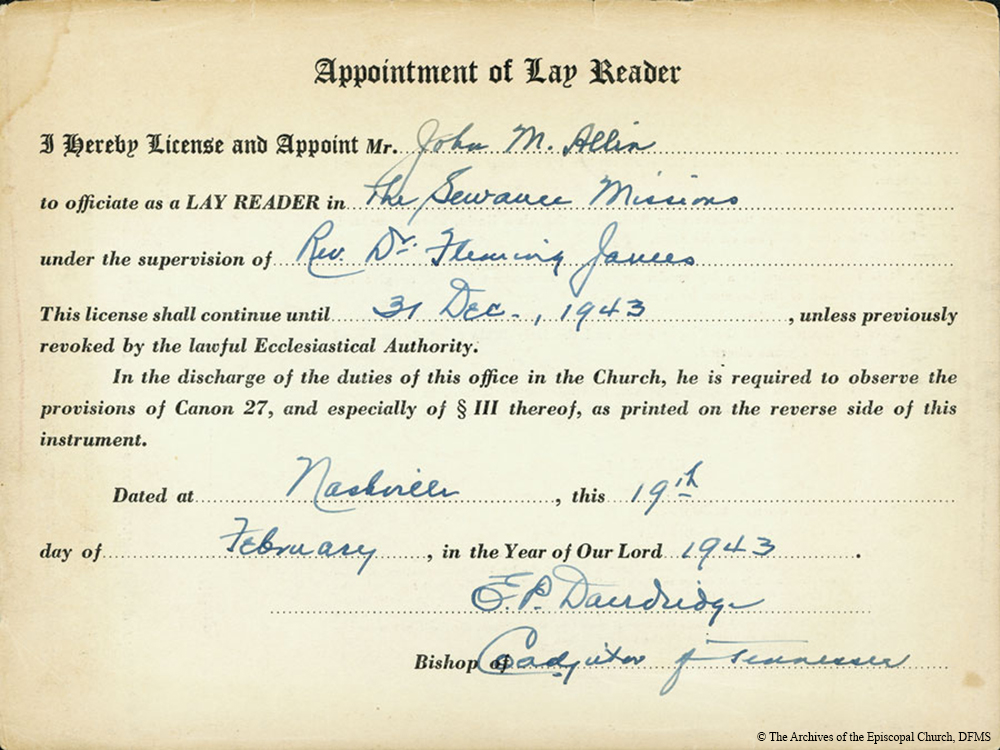 Appointment of Lay Reader
I Hereby License and Appoint Mr. John M. Allin
to officiate as a LAY READER in The Sewanee Missions
under the supervision of Rev. Dr. Fleming James
This license shall continue until 31 Dec., 1943, unless previously
revoked by the lawful Ecclesiastical Authority.
In the discharge of the duties of this office in the Church, he is required to observe the
provisions of Canon 27, and especially of § III thereof, as printed on the reverse side of this
instrument.
Dated at Nashville, this 19th
day of February, in the Year of Our Lord 1943.
E.P. Dandridge
Bishop of Coadjutor of Tennessee
© The Archives of the Episcopal Church, DFMS